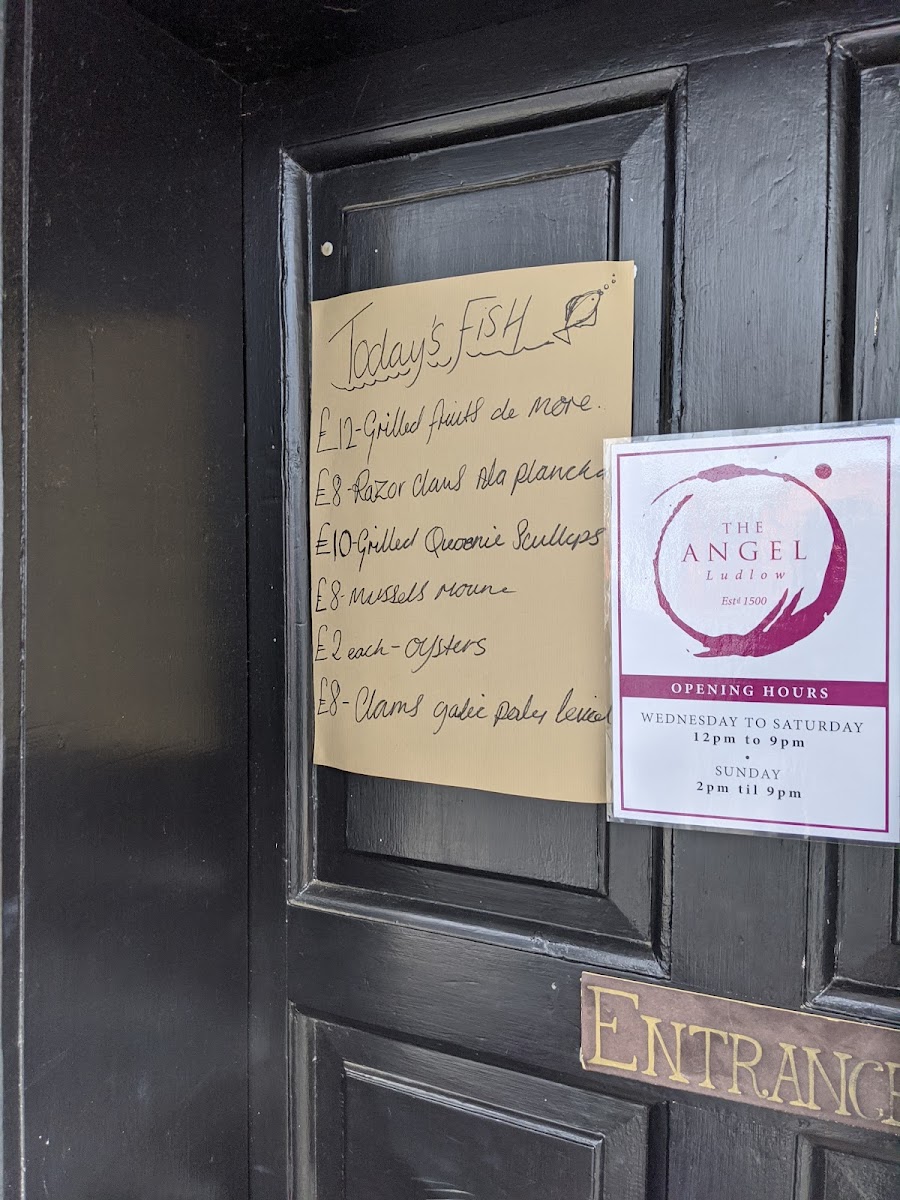 Today's Fish
£12-Grilled fruits de more.
£8-Razor clams Ala plancha
£10-Grilled Queenie Scullops
£8-mussels moune
£2 each-oysters
£8-Clams
THE
ANGEL
Ludlow
Estd 1500
OPENING HOURS
WEDNESDAY TO SATURDAY
12pm to 9pm
•
SUNDAY
2pm til 9pm
ENTRANCE